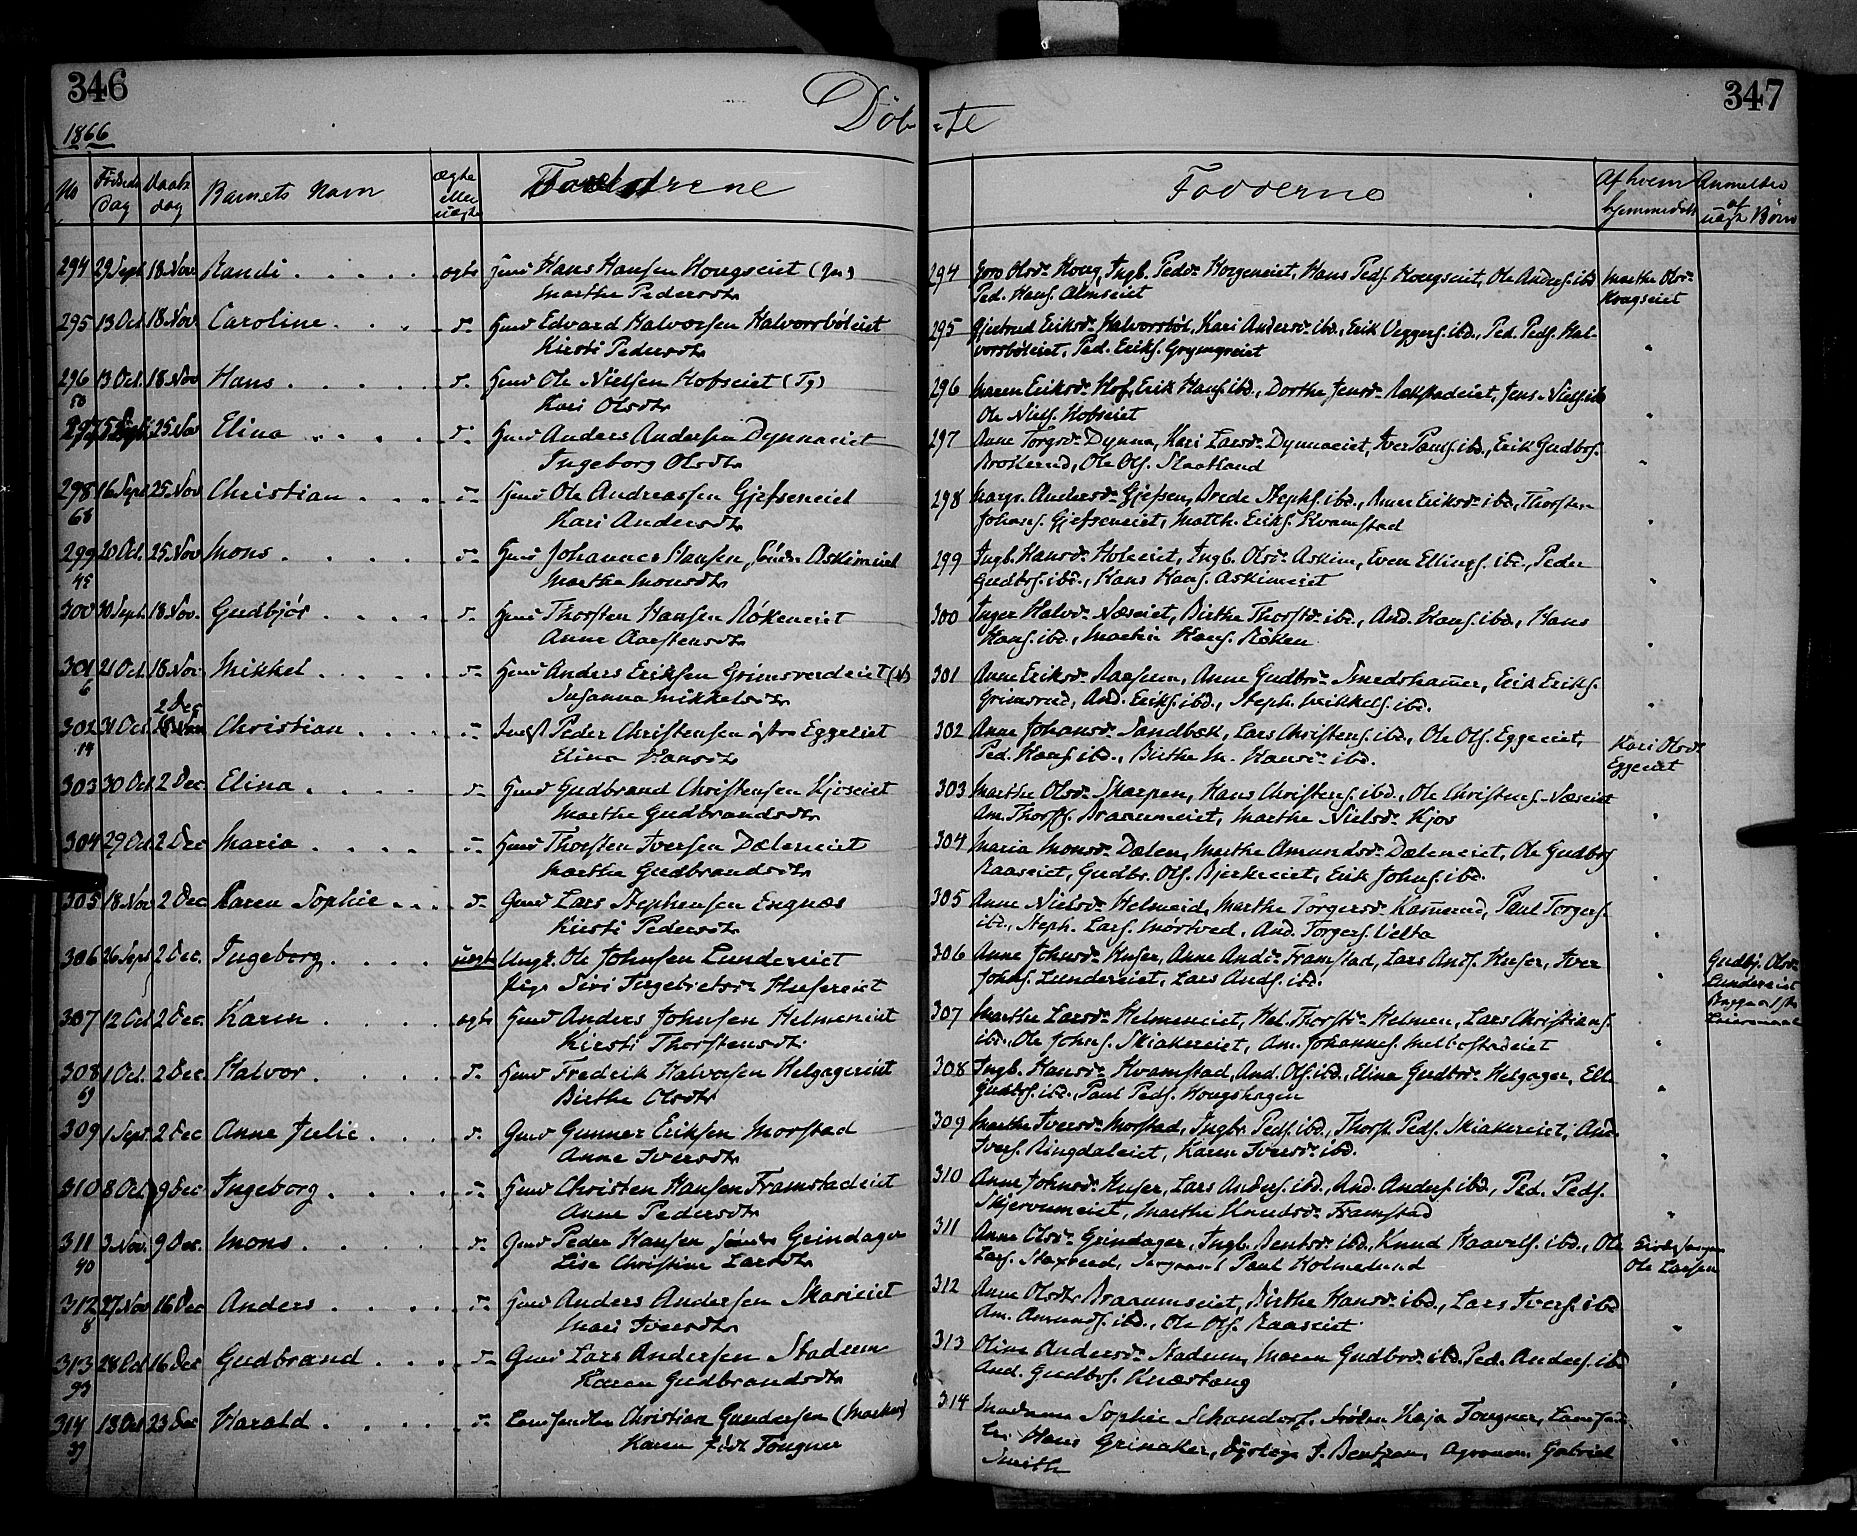 346
1866
Døb-
No Fødsels Dag Daabs dag Barnets Navn ægte eller uægte Forældrene
294 29 Sept 18 Nov Randi ægte Hmd Hans Hansen Hougseiet
Marthe Pedersdtr
295 13 Oct 18 Nov Caroline d- Hmd Edvard Halvorsen Halvorsböleiet
Kirsti Pedersdtr
296 13 Oct. 18 Nov Hans d- Hmd Ole Nielsen Hofseiet (Tg)
50 Kari Olsdtr
297 25 Nov Elina d- Hmd Anders Andersen Dynnaeiet
Ingeborg Olsdtr
298 16 Sept 25 Nov Christian d- Hmd Ole Andreassen Gjefseneiet
68 Kari Andersdtr
299 20 Oct. 25 Nov Mons d- Hmd Johannes Hansen Søndre Askimeiet
45 Marthe Monsdtr
300 30 Sept. 18 Nov. Gudbjør d- Hmd Thorsten Hansen Røkeneiet
Anne Aarstensdtr
301 21 Oct. 18 Nov. Mikkel d- Hmd Anders Eriksen Grimsrudeiet
6 Susanna Mikkelsdtr
2 Dec
302 31 Oct. Christian d- Indst Peder Christensen østre Eggeeiet
14 Elina Hansdtr
303 30 Oct 2 Dec Elina d- Hmd Gudbrand Christensen Kjoseiet
Marthe Gudbrandsdtr
304 29 Oct 2 Dec Maria d- Hmd Thorsten Iversen Dæleneiet
Marthe Gudbrandsdtr
305 18 Nov 2 Dec Karen Sophie d- Gmd Lars Stephensen Engnæs
Kirsti Pedersdtr
306 26 Sept 2 Dec. Ingeborg uægte Ungk. Ole Johnsen Lundereiet
Pige Siri Ingebretsdr Husereiet
307 12 Oct 2 Dec. Karen ægte Hmd Anders Johnsen Helmeneiet
Kirsti Thorstensdtr.
308 1 Oct. 2 Dec. Halvor d- Hmd Fredrik Halvorsen Helgagereiet
69 Birthe Olsdtr
309 1 Sept. 2 Dec Anne Julie d- Gmd Gunner Eriksen Morstad
Anne Iversdtr
310 8 Oct 9 Dec Ingeborg d- Hmd Christen Hansen Framstadeiet
Anne Pedersdtr
311 3 Nov. 9 Dec. Mons d- Gmd Peder Hansen søndre Grindager
90 Lise Christine Larsdtr
312 27 Nov 16 Dec Anders d- Hmd Anders Andersen Skarieiet
8 Mari Iversdtr
313 28 Oct 16 Dec Gudbrand d- Gmd Lars Andersen Stadum
93 Karen Gudbrandsdtr
314 18 Oct 23 Dec Harald d- Landhandler Christian Gundersen
39 Karen født Tongner
347
-te
Fadderne Af hvem hjemmedøbt Anmeldes af uægte Børn
294 Goro Olsdr Houg, Ingb. Pedsdr Hougeneiet, Hans Peds. Hougseiet, Ole Anders. ibd Marthe Olsdr
Ped. Hans. Almseiet Hougseiet
295 Gjertrud Eriksdr Halvorsböl, Kari Andersdr ibd., Erik Veggers. ibd., Ped. Peds. Hal-
vorsböleiet, Ped. Eriks. Grymyreiet
296 Maren Eriksdr Hof, Erik Hans. ibd., Dorthe Jensdr Rækstadeiet, Jens Niels. ibd
Ole Niels. Hofseiet
297 Anne Torgsdr Dynna, Kari Larsdr Dynnaeiet, Iver Pauls. ibd., Erik Gudbrs.
Brokerud, Ole Ols. Slaatland
298 Margr. Andersdr Gjefsen, Brede Stephs. ibd., Anne Eriksdr ibd., Thorsten
Johans. Gjefseneiet, Matth. Eriks. Kvamstad
299 Ingb. Hansdr Holeiet, Ingb. Olsdr Askim, Even Ellings. ibd., Peder
Gudbrs. ibd., Hans Hans. Askimeiet
300 Inger Halvdr Næseiet, Birthe Thorstdr ibd., And. Hans. ibd., Hans
Hans. ibd., Martin Hans. Røken
301 Anne Eriksdr Raasum, Anne Gudbrdr Smedshammer, Erik Eriks.
Grimsrud, And. Eriks. ibd., Steph. Mikkels. ibd.
302 Anne Johansdr Sandbæk, Lars Christens. ibd., Ole Ols. Eggeeiet, Kari Olsdr
Ped. Hans. ibd., Birthe M. Hansdr ibd. Eggeeiet
303 Marthe Olsdr Skarpen, Hans Christens. ibd., Ole Christens. Næseiet
Am. Thorss. Braaumeiet, Marthe Nielsdr Kjos
304 Maria Monsdr Dælen, Marthe Amundsdr Dæleneiet, Ole Gudbrs
Raaseiet, Gudbr. Ols. Bjerkeeiet, Erik Johns. ibd.
305 Anne Nielsdr Helmeid, Marthe Torgersdr Kamrud, Paul Torgers.
ibd., Steph. Lars. Mortved, And. Torgers. Velta
306 Anne Johnsdr Huser, Anne Andr Framstad, Lars Ands. Huser, Iver Gudbj. Olsdr
Johns. Lundereiet, Lars Ands. ibd. Lundereiet
307 Marthe Larsdr Helmeneiet, Hel. Thorstdr Helmen, Lars Christians.
ibd., Ole Johns. Skiakereiet, Am. Johannes. Melbostadeiet
308 Ingb. Hansdr Kvamstad, And. Ols. ibd., Elina Gudbrdr Helgager, Ell.
Gudbrs. ibd., Paul Peds. Hougshagen
309 Marthe Iversdr Morstad, Ingbr. Peds. ibd., Thorst. Peds. Skiakereiet, And.
Ivers. Ringdaleiet, Karen Iversdr ibd.
310 Anne Johnsdr Huser, Lars Anders. ibd., And. Anders. ibd., Ped. Peds.
Skjervumeiet, Marthe Knudsdr Framstad
311 Anne Olsdr Grindager, Ingb. Bentsdr ibd., Knud Haavels. ibd., Ole
Lars. Staxrud, Sergeant Paul Holmelund Ole Larsen
312 Anne Olsdtr Braaumseiet, Birthe Hansdr ibd., Lars Ivers. ibd
Am. Amunds. ibd., Ole Ols. Raaseiet
313 Oline Andersdr Stadum, Maren Gudbrdr ibd. Ped. Anders. ibd
And. Gudbrs. Knæstang
314 Madame Sophie Schandorf, Frøken Kaja Tongner,
Hans Grinaker, Dyrlæge J. Bentzen, Agronom Gabriel
Smith